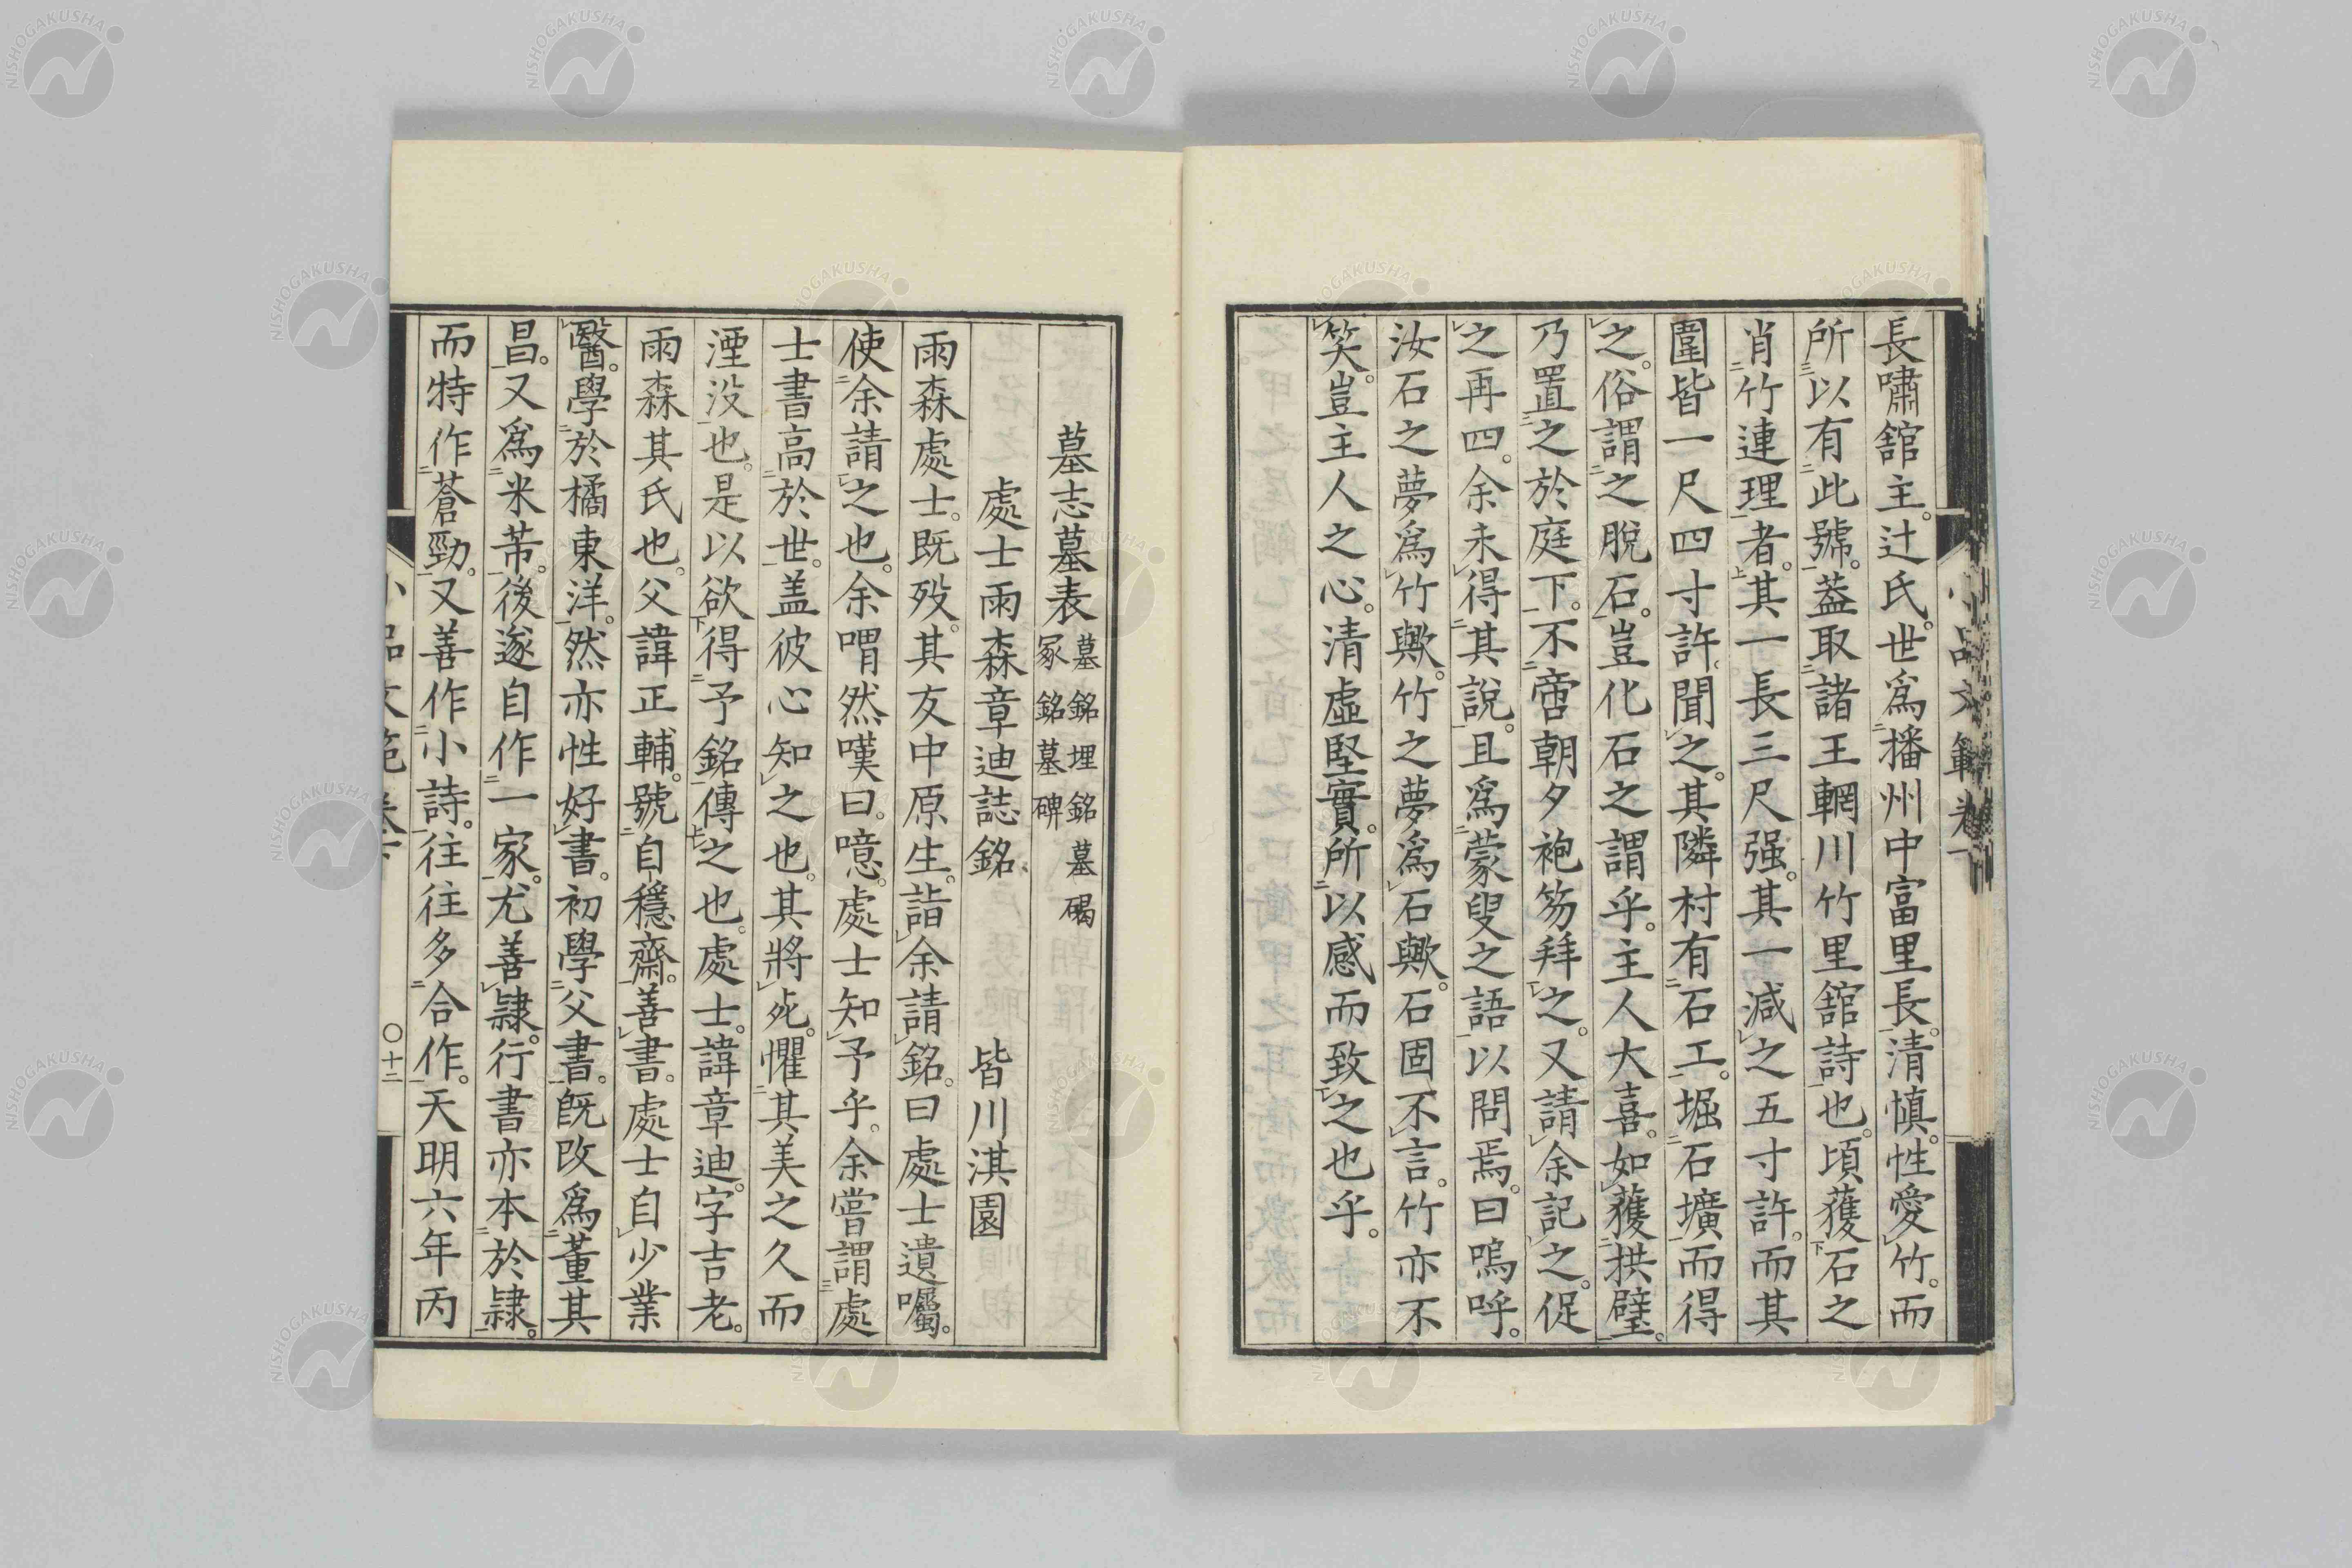 長嘯舘主。辻氏。世爲播州中富里長。清慎。性愛竹。而
所以有此號。葢取諸王輞川竹里舘詩也。頃獲石之
肖竹連理者。其一長三尺强。其一減之五寸許。而其
圍皆一尺四寸許。聞之。其隣村有石工。堀石壙而得
之。俗謂之脫石。豈化石之謂乎。主人大喜。如獲拱璧。
乃置之於庭下。不啻朝夕袍笏拜之。又請余記之。促
之再四。余未得其說。且爲蒙叟之語以問焉。曰嗚呼。
汝石之夢爲竹歟。竹之夢爲石歟。石固不言。竹亦不
笑。豈主人之心。清虛堅實。所以感而致之也乎。
墓志墓表 墓銘埋銘墓碣
冢銘墓碑
處士雨森章迪誌銘 皆川淇園
雨森處士。既歿。其友中原生。詣余請銘。曰處士遺囑。
使余請之也。余喟然嘆曰。噫。處士知予乎。余嘗謂處
士書高於世。盖彼心知之也。其將死。懼其美之久而
湮没也。是以欲得予銘傳之也。處士。諱章迪。字吉老。
雨森其氏也。父諱正輔。號自穩齋。善書。處士自少業
醫。學於橘東洋。然亦性好書。初學父書。既改爲董其
昌。又爲米芾。後遂自作一家。尤善隷。行書亦本於隷。
而特作蒼勁。又善作小詩。往往多合作。天明六年丙
小品文範卷下
〇十二
NISHOGAKUSHA